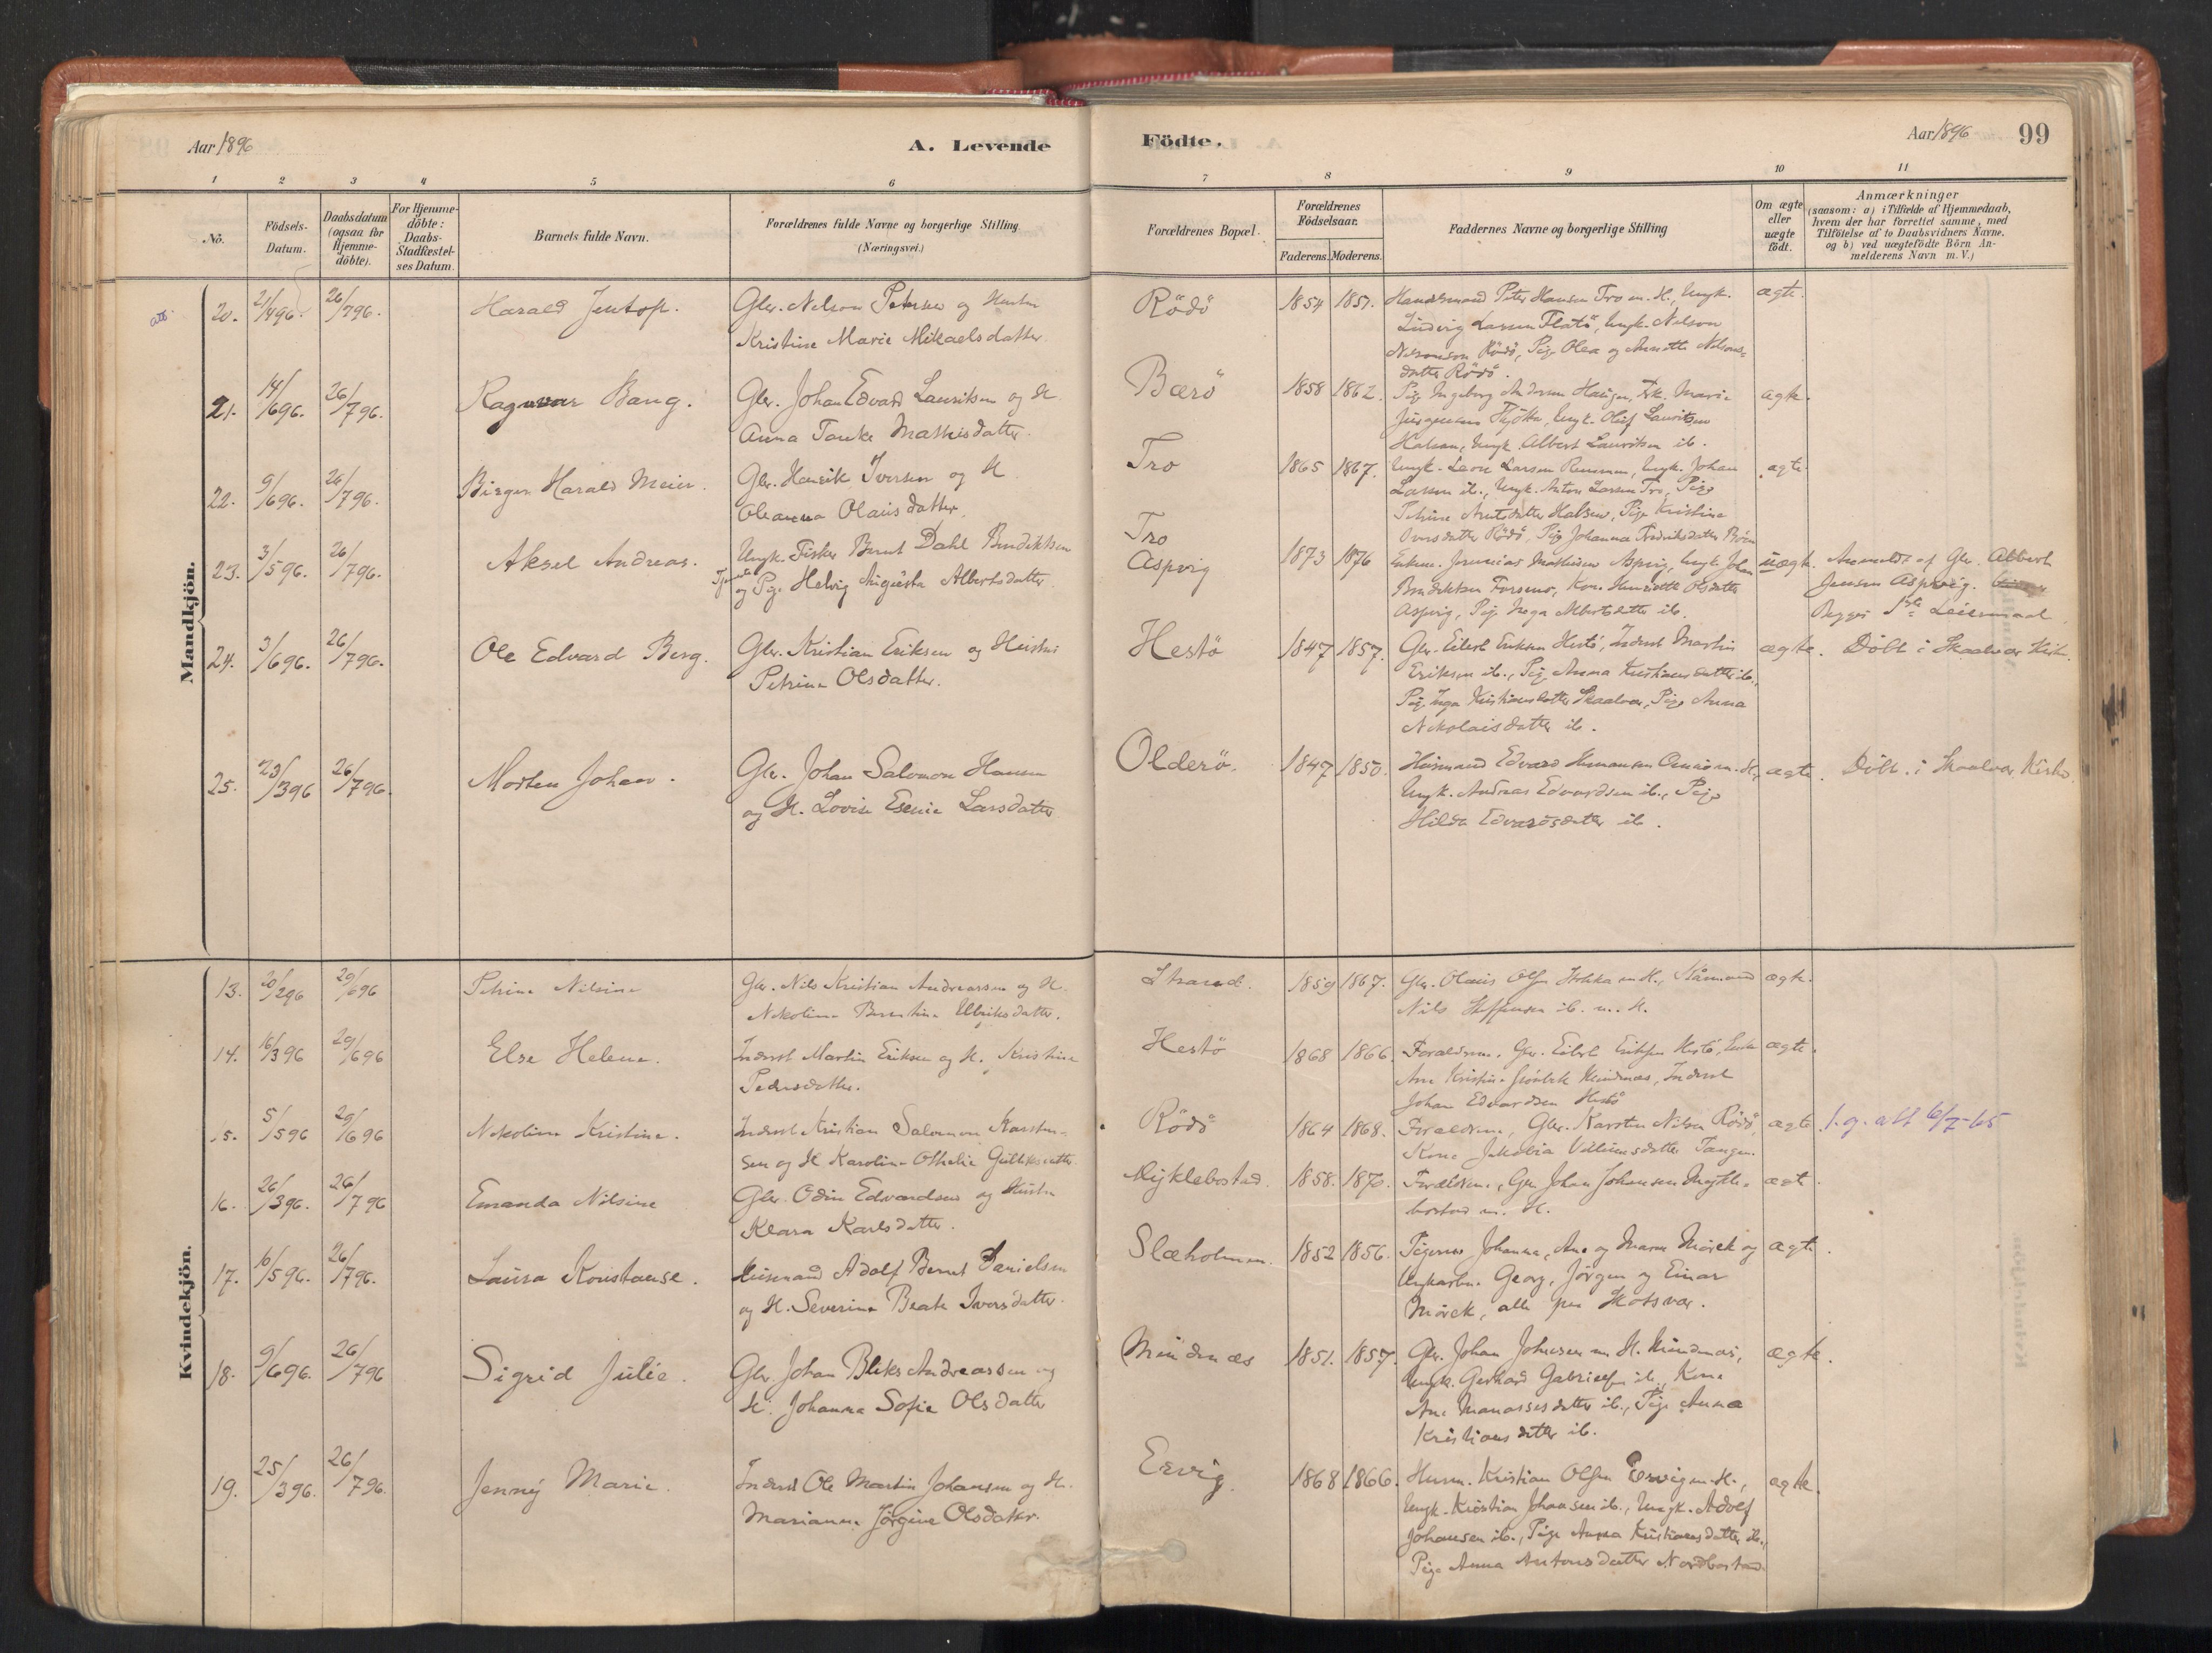 Aar 1896
A. Levende
Födte.
Aar 1896
99
1 2 3 4 5 6 7 8 9 10 11
No.
Födsels-Datum.
Daabsdatum (ogsaa for Hjemme-döbte).
For Hjemme-döbte: Daabs-Stadfæstel-ses Datum.
Barnets fulde Navn.
Forældrenes fulde Navne og borgerlige Stilling (Næringsvei.)
Forældrenes Bopæl.
Forældrenes Födselsaar.
Faderens. Moderens.
Faddernes Navne og borgerlige Stilling
Om ægte eller uægte födt.
Anmærkninger (saasom: a) i Tilfælde af Hjemmedaab, hvem der har forrettet samme, med Tilföielse af to Daabsvidners Navne, og b) ved uægtefödte Börn An-melderens Navn m. V.)
Mandkjön.
att.
20. 21/4 96. 26/7 96. Harald Jentoft. Gbr. Nelson Petersen og Hustru Rödö 1854 1857. Handelsmand Peter Hansen Tro m. H., Ungk. ægte.
Kristine Marie Mikaelsdatter. Ludvig Larsen Flatö, Ungk. Nelson
Rödö, Pige Olea og Nelsons-
datter Rödö.
21. 14/6 96. 26/7 96. Ragnvar Bang. Gbr. Johan Edvard Lauritsen og H. Bærö 1858 1862. Pige Ingeborg Andersen Haugen, Frk. Marie ægte.
Anna Tonke Mathisdatter. Jürgensen Thjötta, Ungk. Oluf Lauritsen
Halsen, Ungk. Albert Lauritsen ib.
22. 9/6 96. 26/7 96. Birger Harald Meier. Gbr. Henrik Iversen og H. Tro 1865 1867. Ungk. Larsen Ungk. Johan ægte
Oleanna Olausdatter. Larsen ib., Ungk. Anton Larsen Tro, Pige
Petrine Halsen, Pige Kristine
Iversdatter Rödö, Pige Johanna Fredriksdatter
23. 3/5 96. 26/7 96. Aksel Andreas. Ungk. Fisker Bernt Dahl Bendiksen Tro
og Pige Helvig Augusta Albertsdatter. Aspvig 1873 1876 Jeremias Mathisen Aspvig, Ungk. Johan uægte. Anmeldt af Gbr. Albert
Bendiksen Forsenø, Kone Henriette Olsdatter Jensen Aspvig.
Aspvig, Pige Inga Albertsdatter ib. Begges 1ste Leiermaal.
24. 3/6 96. 26/7 96. Ole Edvard Berg. Gbr. Kristian Eriksen og Hustru Hestö 1847 1857. Gbr. Eilert Eriksen Hestö, Inderst Martin ægte. Döbt i Skaalvær Kirke.
Petrine Olsdatter. Eriksen ib., Pige Anna Kristiansdatter ib.,
Pige Inga Kristiansdatter Skaalvær, Pige Anna
Nikolaisdatter ib.
25. 23/3 96 26/7 96. Morten Johan. Gbr. Johan Salomon Hansen Olderö. 1847 1850. Husmand Edvard Hermansen m. H., ægte. Döbt i Skaalvær Kirke.
og H. Lovise Esenie Larsdatter Ungk. Andreas Edvardsen ib., Pige
Hilda Edvardsdatter ib.
Kvindekjön.
13. 20/2 96 29/6 96 Petrine Nilsine Gbr. Nils Kristian Andreassen og H. Strand. 1859 1867. Gbr. Olaus Olsen m. H., ægte.
Nikoline Berntine Ulriksdatter. Nils Steffensen ib. m. H.
14. 16/3 96 29/6 96 Else Helene. Inderst Martin Eriksen og H. Kristine Hestö 1868 1866. Forældrene. Gbr. Eilert Eriksen Hestö, Enke ægte.
Pedersdatter. Ane Kristine Grönbek Mindnæs, Inderst
Johan Edvardsen Hestö
15. 5/5 96 29/6 96 Nikoline Kristine. Inderst Kristian Salomon Karsten- Rödö 1864 1868. Forældrene, Gbr. Karsten Nilsen Rödö, ægte. l. g. att 6/7-65
sen og H. Karoline Othelie Gulliksdatter. Kone Jakobia Villumsdatter Tangen.
16. 26/3 96. 26/7 96 Emanda Nilsine Gbr. Odin Edvardsen og Hustru Myklebostad. 1858. 1870. Forældrene, Gbr. Johan Johansen Mykle- ægt.
Klara Karlsdatter. bostad m. H.
17. 16/5 96. 26/7 96. Laura Konstanse. Husmand Adolf Bernt Danielsen Slæholmen. 1852 1856. Pigerne Johanna, Ane og Maren Mörck og ægte.
og H. Severine Beate Iversdatter. Ungkarle. Georg, Jörgen og Einar
Mörck, alle paa Skotsvær.
18. 9/6 96. 26/7 96 Sigrid Julie. Gbr. Johan Bliks Andreassen og Mindnæs 1851. 1857. Gbr. Johan Johnsen m. H. Mindnæs, ægte.
H. Johanna Sofie Olsdatter Ungk. Gerhard Gabrielsen ib., Kone
Ane Manassesdatter ib., Pige Anna
Kristiansdatter ib.
19. 25/3 96. 26/7 96. Jenny Marie. Inderst Ole Martin Johansen og H. Ervig. 1868 1866. Husm. Kristian Olsen Ervig m. H., ægte.
Marianne Jörgine Olsdatter. Ungk. Kristian Johansen ib., Ungk. Adolf
Johansen ib., Pige Anna Kristiansdatter ib.,
Pige Anna Antonsdatter Nordbostad.